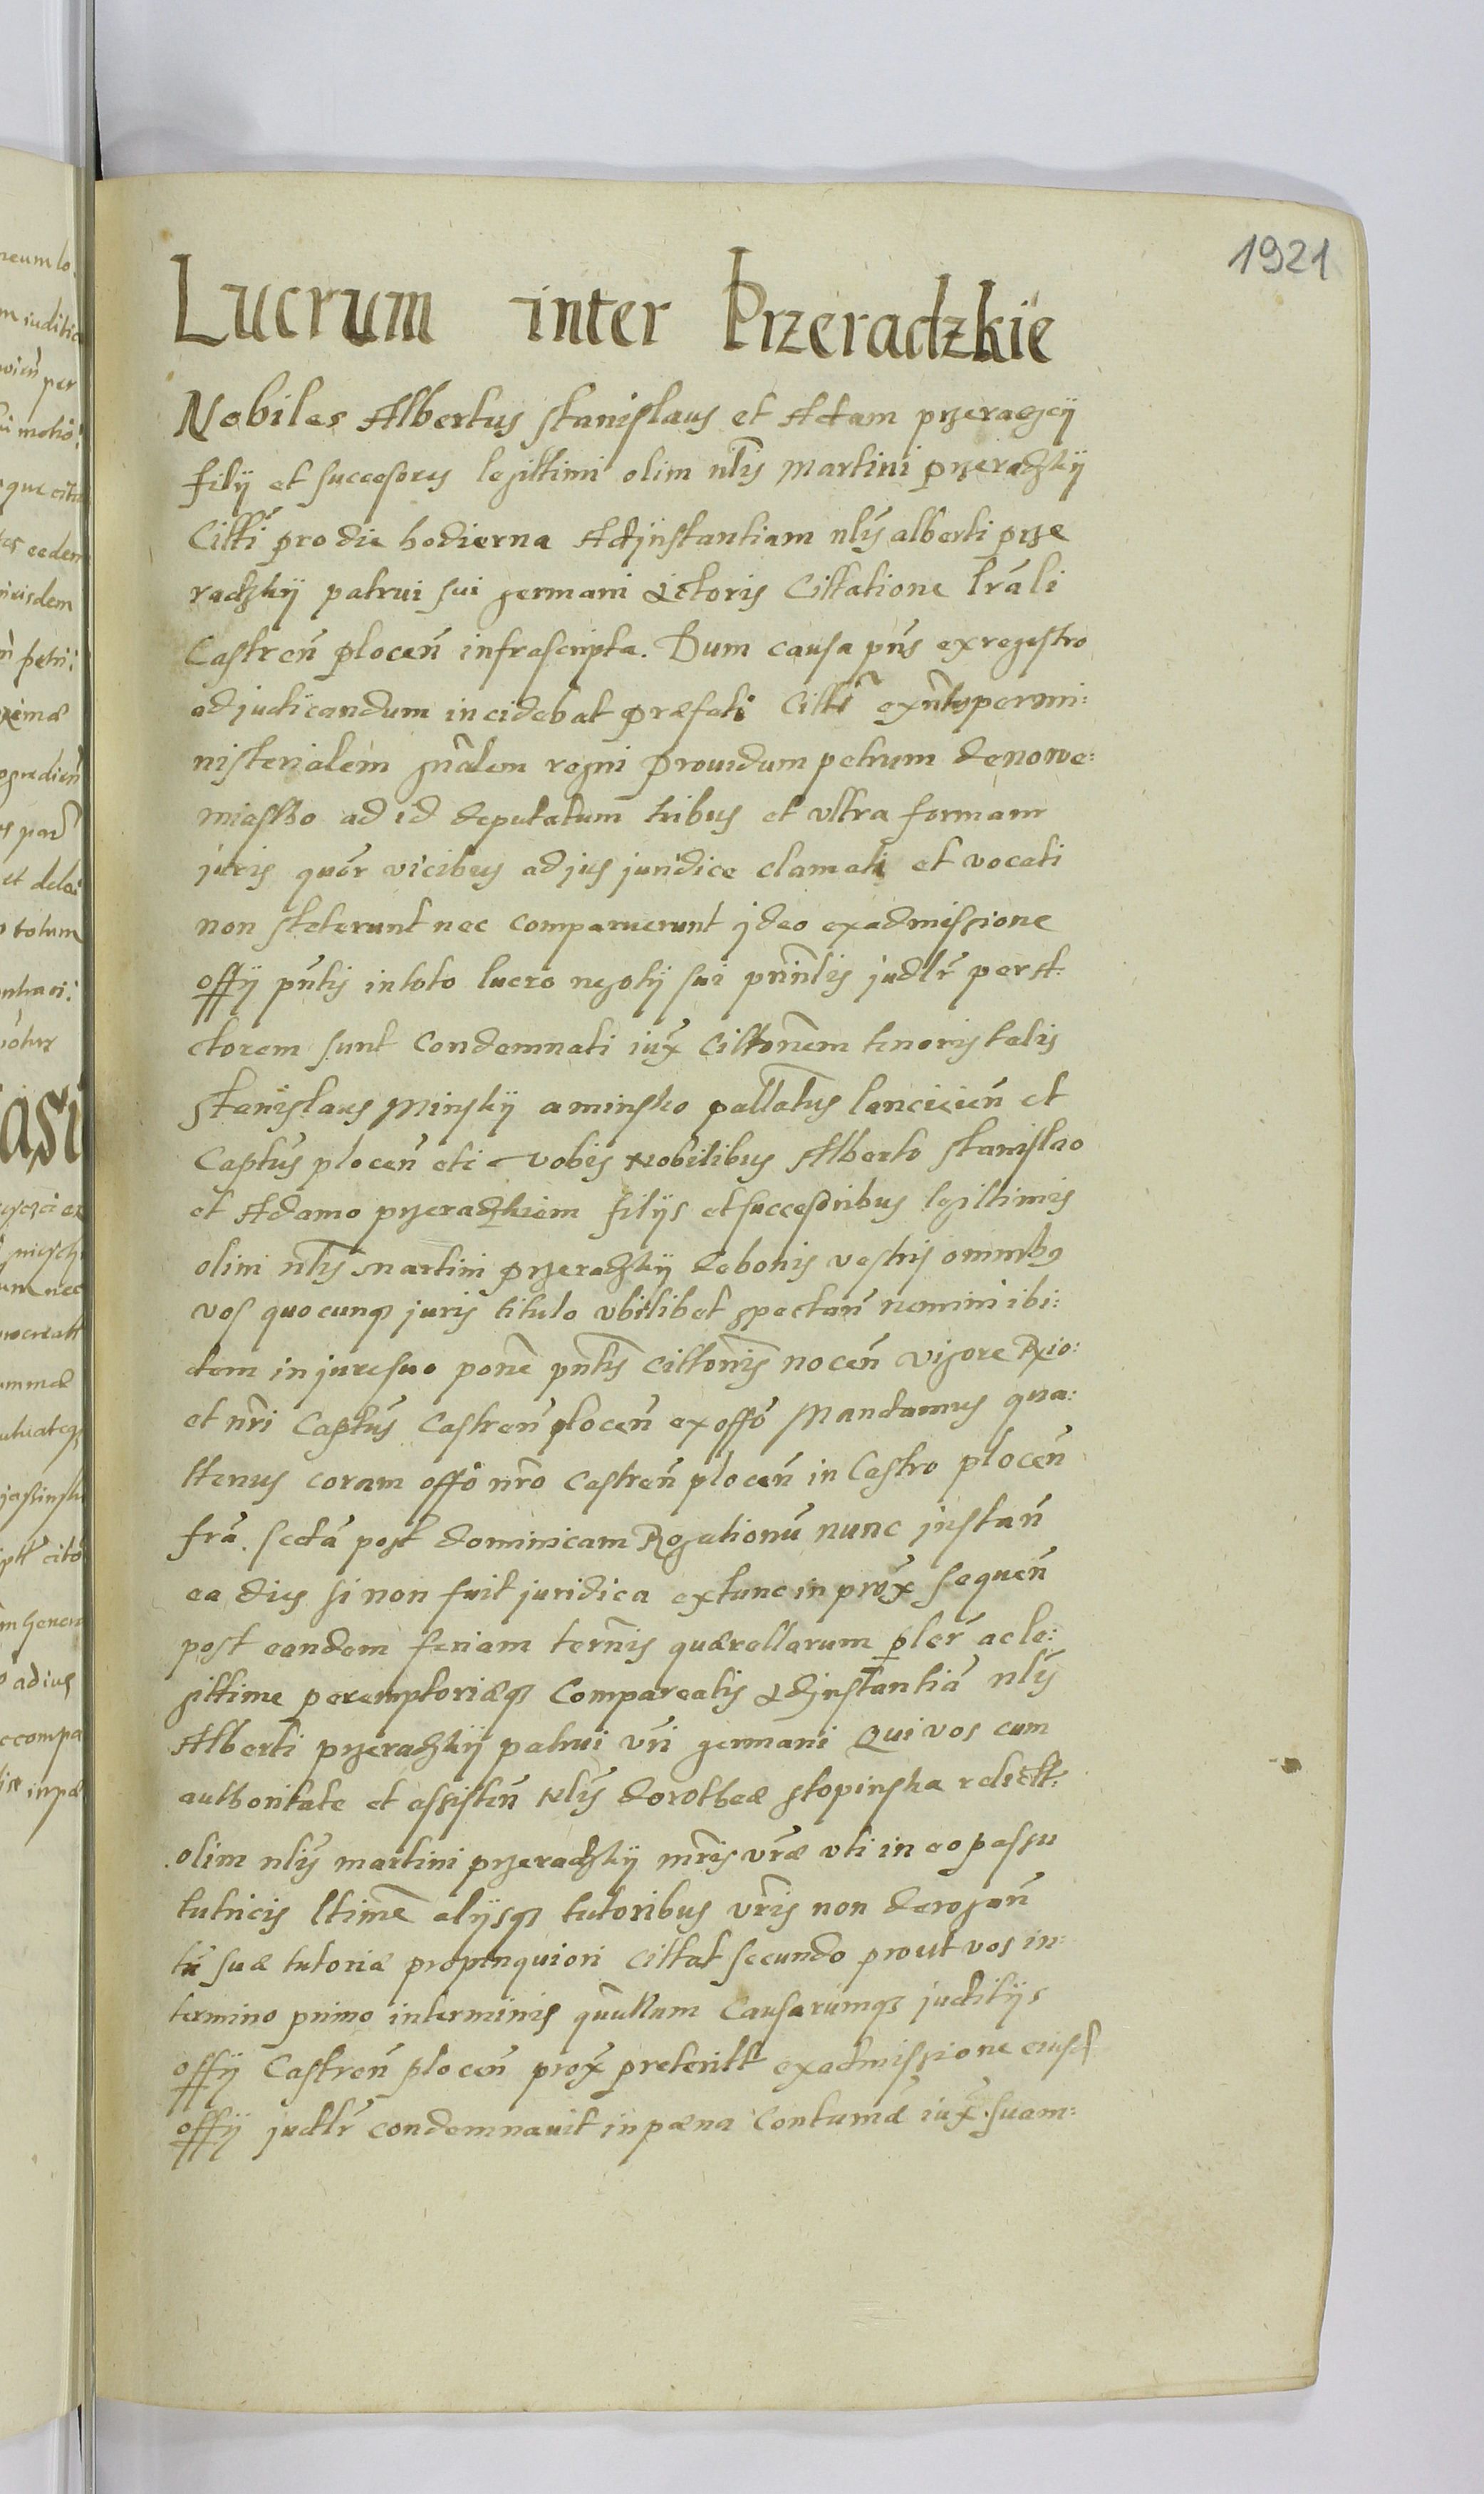 1921
Lucrum inter Przeradzkie
Nobiles Albertus Stanislaus et Adam przeradzcÿ
filÿ et succesores legittimi olim nlis Martini przeradzkÿ
Citti pro die hodierna Ad jnstantiam nlis alberti prze
radzkÿ patrui sui germani Actoris Cittatione lrali
Castren plocen infrascripta. Dum causa pns ex regestro
ad judicandum incidebat præfati Citti exntes per mi:
nisterialem gnalem regni Prouidum petrum de nowe:
miastko ad id deputatum tribus et vltra formam
juris quor vicibus ad jus juridice clamati et vocati
non steterunt nec comparuerunt jdeo ex admissione
offÿ pntis in toto lucro negotÿ sui prinlis judlr per A:
ctorem sunt Condemnati iux Cittonem tenoris talis
Stanislaus Minskÿ a minsko pallatus lancicien et
Captus plocen etc vobis Nobilibus Alberto Stanislao
et Adamo przeradzkiem filÿs et succesoribus legittimis
olim nlis Martini przeradzkÿ de bonis vestris omnibus
vos quocunq juris titulo vbilibet spectan nemini ibi:
dem in jure suo pone pntis cittonis nocen vigore Rxio:
et nri Captus Castren plocen ex offo Mandamus qua:
ttenus coram offo nro Castren plocen in Castro plocen
fra. secda post dominicam Rogationu nunc jnstan
ea dies si non fuit juridica extunc in prox sequen
post eandem feriam ternis quærellarum pler ac le:
gittime peremptoriæq Compareatis Ad jnstantia nlis
Alberti przeradzkÿ patrui vri germani Qui vos cum
authoritate et assisten Nlis dorotheæ stopinska relictt:
olim nlis martini przeradzkÿ mris vræ vti in eo passu
tutricis ltimæ alÿsq tutoribus vris non derogan
tu suæ tutoriæ propinquiori cittat secundo prout vos in
termino primo in terminis qærullarum Causarumq juditÿs
offÿ Castren plocen prox preteritt ex admissione eiusd
offÿ judlr condemnauit in pæna Contumæ iux suam: